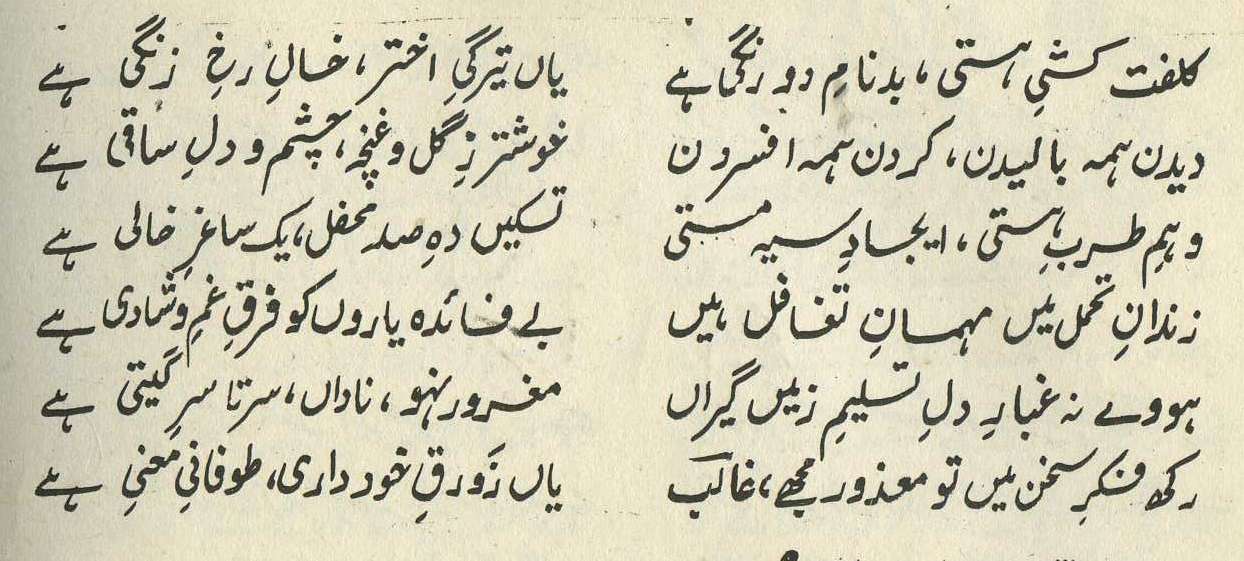 کلفت کشیِ ہستی، بدنامِ دو رنگی ہے یاں تیرگیِ اختر، خالِ رخِ زنگی ہے
دیدن ہمہ بالیدن، کردن ہمہ افسردن خوشتر زِ گل و غنچہ، چشم و دلِ ساقی ہے
وہمِ طربِ ہستی، ایجادِ سیہ مستی تسکیں دہِ صد محفل، یک ساغرِ خالی ہے
زندانِ تحمل میں مہمانِ تغافل ہیں بے فائدہ یاروں کو فرقِ غم و شادی ہے
ہووے نہ غبارِ دل تسلیمِ زمیں گیراں مغرور نہو، ناداں، سر تا سرِ گیتی ہے
رکھ فکرِ سخن میں تو معذور مجھے، غالب یاں زَورقِ خود داری، طوفانیِ معنی ہے